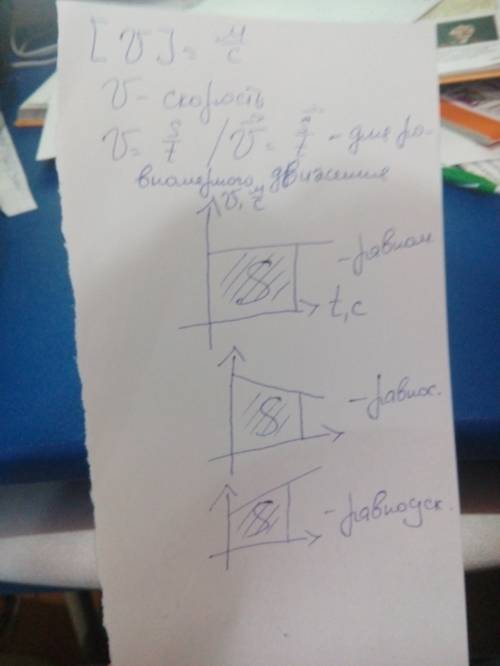 [V] = м/с
V - скорость
V = S/t / V⃗ = S⃗/t - для ра-
вномерного движения
V, м/с
- равном
S
t, с
- равнос.
S
- равноуск.
S